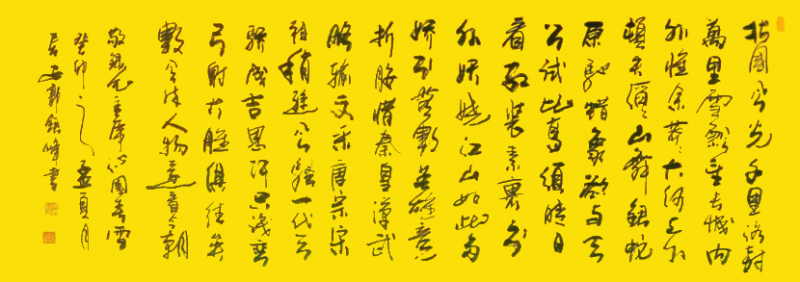 北国风光千里冰封
萬里雪飘望长城内
外惟余莽莽大河上下
顿失滔滔山舞银蛇
原驰蜡象欲与天
公试比高须晴日
看红装素裹分
外妖娆江山如此多
娇引无数英雄竞
折腰惜秦皇汉武
略输文采唐宗宋
祖稍逊风骚一代天
骄成吉思汗只识弯
弓射大雕俱往矣
数风流人物还看今朝
敬録毛主席沁園春雪
癸卯之孟夏月
长安郭峰書